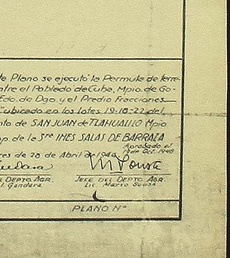 te Plano se ejecutó la Permuta de Terre-
ntre el Poblado de Cuba, Mpio. de Go-
Edo. de Dgo. y el Predio Fracciones
" ubicado en los lotes 19-18-22 del
to de SAN JUAN de TLAHUALILO Mpio
op. de la Sra INES SALAS DE BARRAZA
Aprobado el
res de 28 de Abril de
DEL DEPTO AGR. JEFE DEL DEPTO AGR.
l. Gandara Lic. Mario Sousa
PLANO Nº